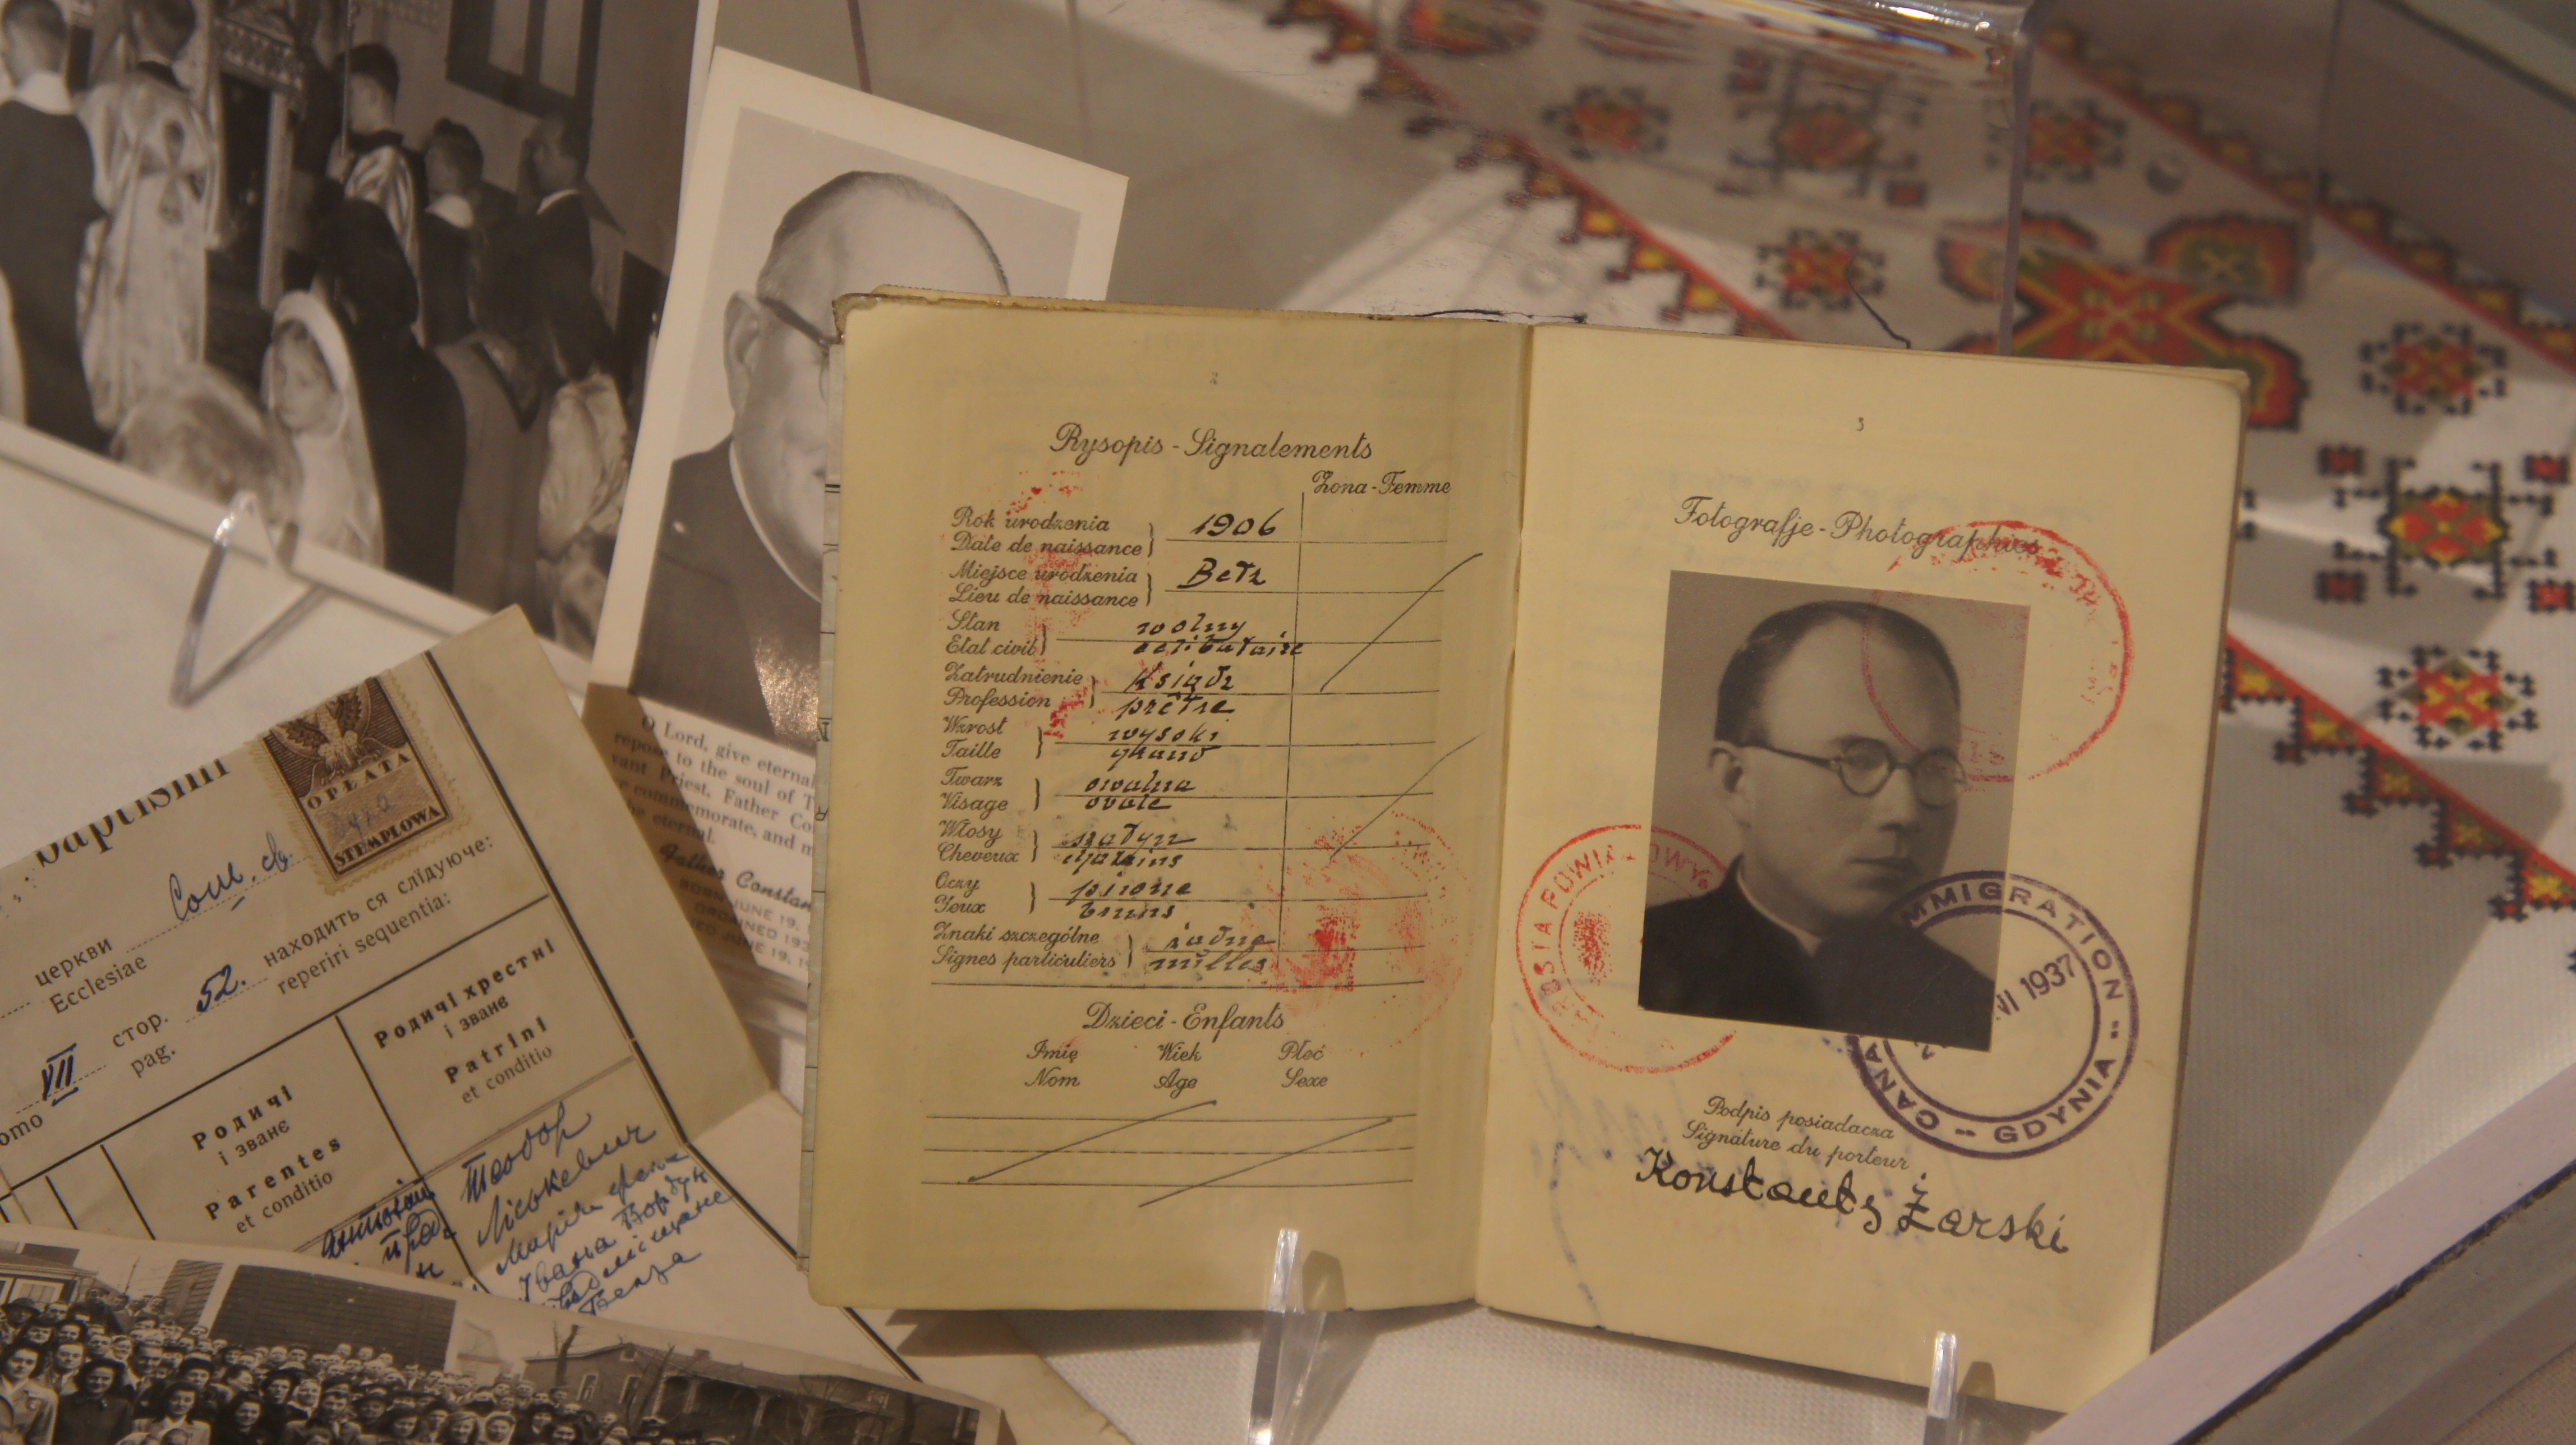 2
Rysopis - Signalements
Żona - Femme
Rok urodzenia
Date de naissance
1906
Miejsce urodzenia
Lieu de naissance
Bełz
Stan
Etat civil
wolny
celibataire
Zatrudnienie
Profession
Ksiądz
prêtre
Wzrost
Taille
wysoki
grand
Twarz
Visage
owalna
ovale
Włosy
Cheveux
szatyn
Oczy
Yeux
piwne
bruns
Znaki szczególne
Signes particuliers
żadne
nulles
Dzieci - Enfants
Imię Wiek Płeć
Nom Age Sexe
3
Fotografje - Photographies
IMMIGRATION
CANA
GDYNIA
VII 1937
Podpis posiadacza
Signature du porteur
Konstanty Żarski
O Lord, give eternal
repose to the soul of T
vant Priest, Father Co
commemorate, and m
he eternal.
Father Constan
BORN JUNE 19,
ORDAINED 193
JUNE 19, 1
baptismi
OPŁATA
STEMPLOWA
церкви
Ecclesiae
Сош. св.
находить ся слїдуюче:
reperiri sequentia:
omo VII стор. 52.
pag.
Родичі
і званє
Parentes
et conditio
Родичі хрестні
і званє
Patrini
et conditio
Теодор
Марія
Івана